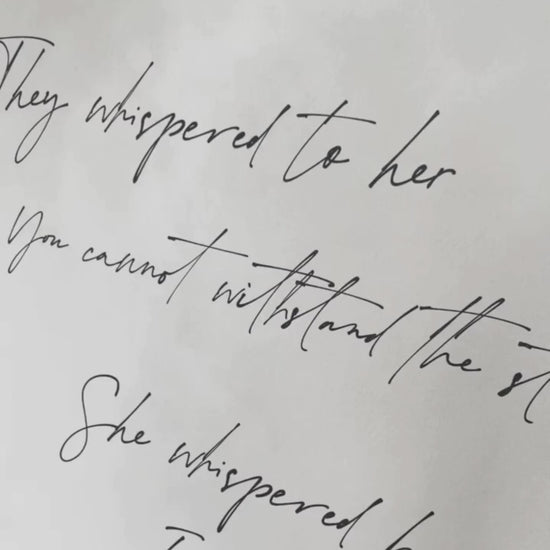 They whispered to her
You cannot withstand the st
She whispered b